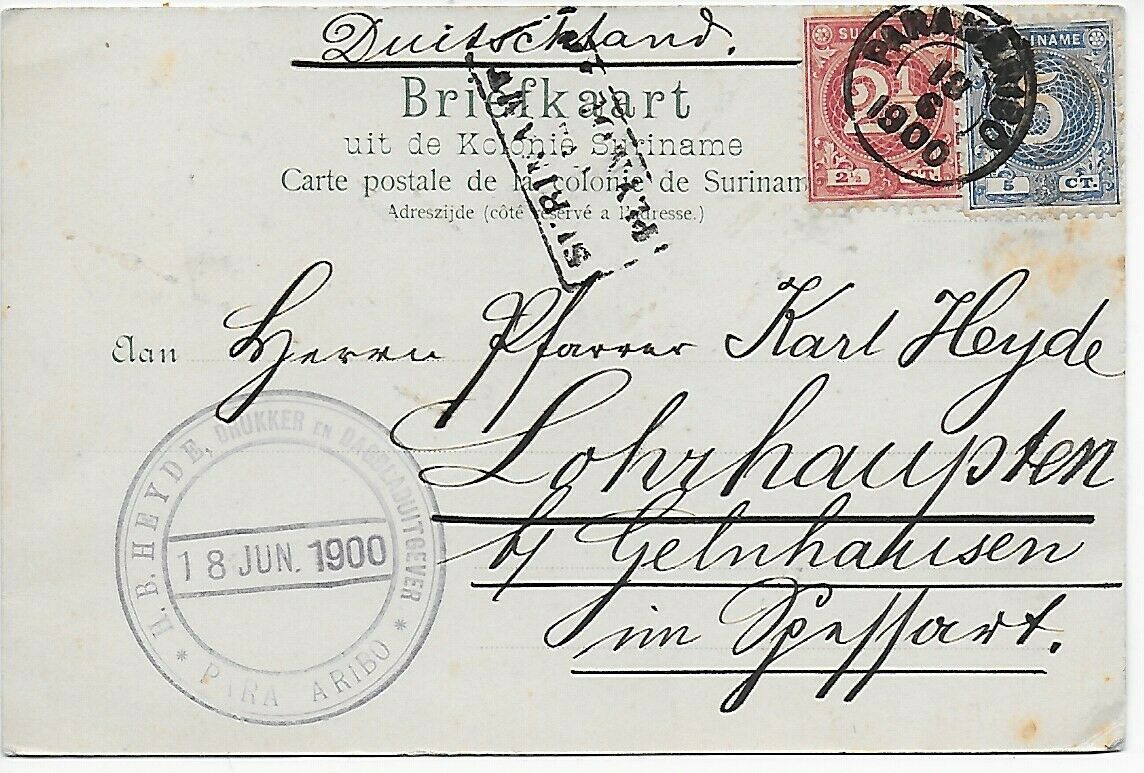 Duitschland.
Briefkaart
uit de Kolonie Suriname
Carte postale de la colonie de Surinam
Adreszijde (côté réservé a l'adresse.)
SURINAME
2½
2½ CT.
SURINAME
5
5 CT.
PARAMARIBO
18
6
1900
SURINAME
Aan Herrn Pfarrer Karl Heyde
Lohrhaupten
b/ Gelnhausen
im Spessart.
H. B. HEYDE, DRUKKER EN DAGBLADUITGEVER
18 JUN. 1900
* PARAMARIBO *